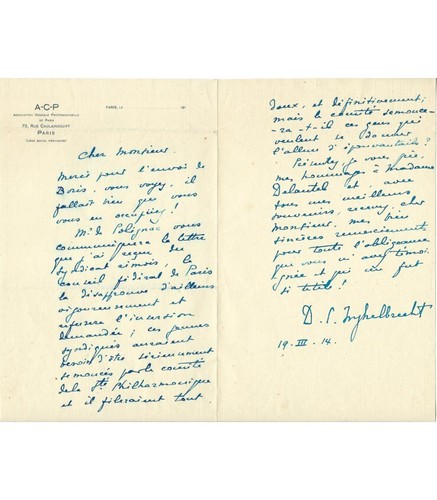 A-C-P
Association Chorale Professionnelle
de Paris
75, Rue Caulaincourt
Paris
(Siège social provisoire)
Paris, le 191
Cher Monsieur,
Merci pour l'envoi de
Boris, vous voyez, il
fallait bien que vous
vous en occupiez !
Mr de Polignac vous
communiquera la lettre
que j'ai reçue du
syndicat rémois, le
conseil fédéral de Paris
la désapprouve d'ailleurs
vigoureusement et
refusera l'insertion
demandée ; ces jaunes
syndiqués auraient
besoin d'être sérieusement
semoncés par le comité
de la Sté Philharmonique
et il fileraient tout
doux, et définitivement ;
mais le comité semonce-
-ra-t-il ces gens qui
veulent se donner
l'allure d'épouvantails ?
Présentez, je vous prie,
mes hommages à Madame
et avec
tous mes meilleurs
souvenirs, recevez, cher
Monsieur, mes très
sincères remerciements
pour toute l'obligeance
que vous m'avez témoi-
gnée et qui me fut
si utile !
D. E. Inghelbrecht
19. III. 14.